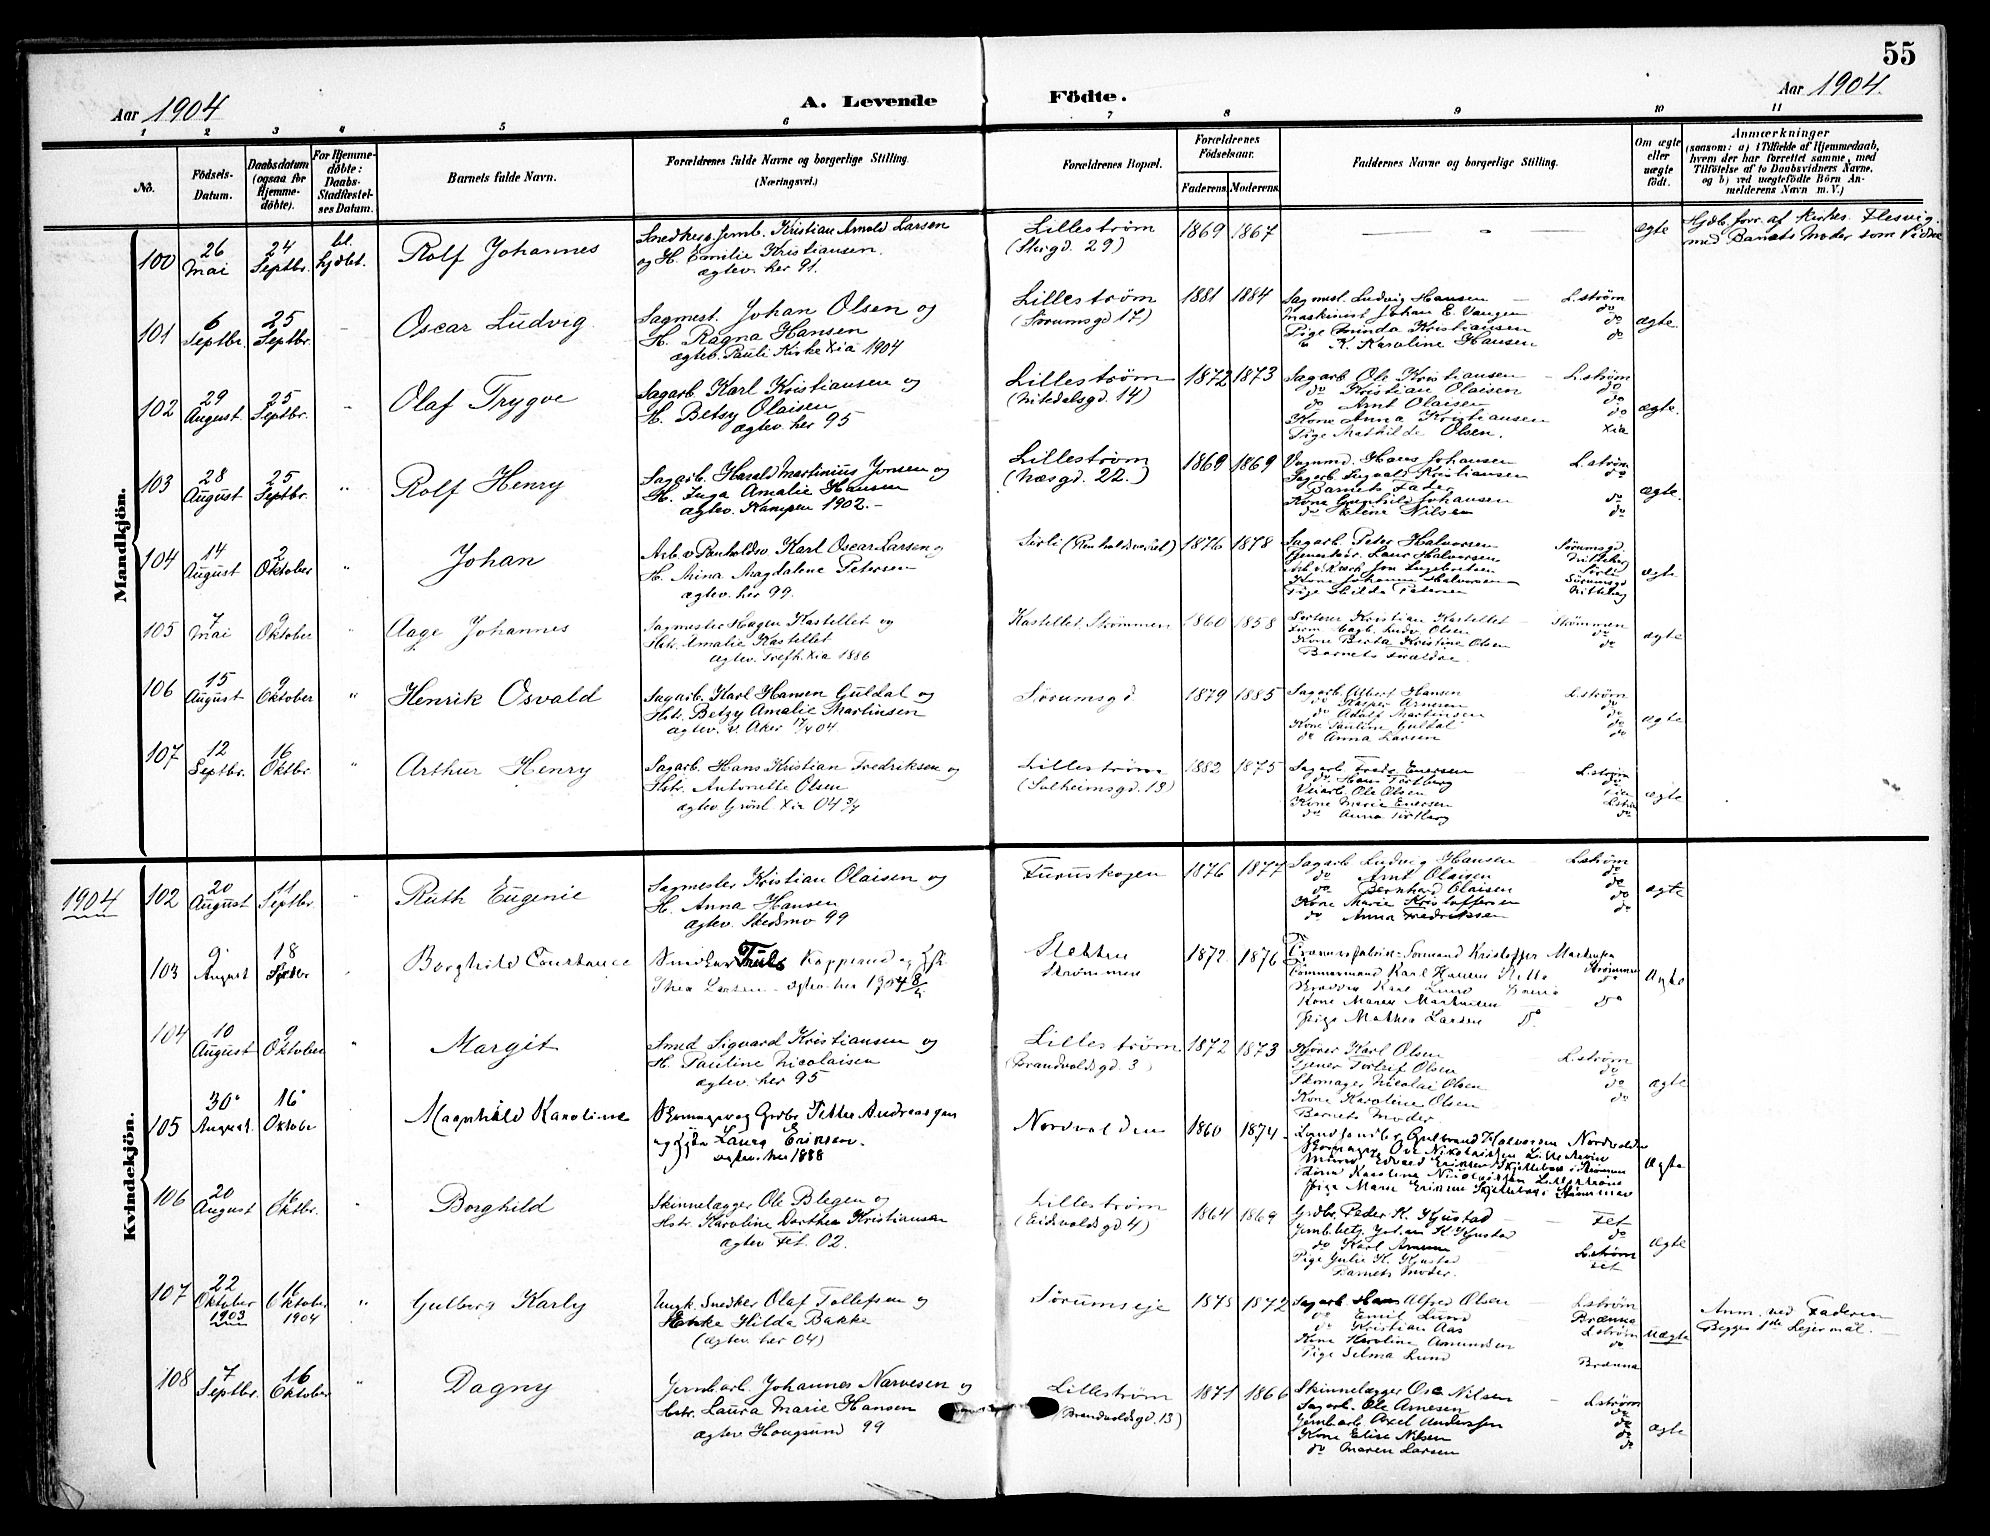 55
Aar 1904
A. Levende Födte.
Aar 1904.
1 2 3 4 5 6 7 8 9 10 11
No.
Födsels-Datum.
Daabsdatum (ogsaa for Hjemme-döbte).
For Hjemme-döbte: Daabs-Stadfæstel-ses Datum.
Barnets fulde Navn.
Forældrenes fulde Navne og borgerlige Stilling.
(Næringsvei.)
Forældrenes Bopæl.
Forældrenes Födselsaar.
Faderens. Moderens.
Faddernes Navne og borgerlige Stilling.
Om ægte eller uægte födt.
Anmærkninger
(saasom: a) i Tilfælde af Hjemmedaab,
hvem der har forrettet samme, med
Tilföielse af to Daabsvidners Navne,
og b) ved uægtefödte Börn An-
melderens Navn m. V.)
Mandkjön.
100 26 Mai 24 Septbr. bl. hjdbt. Rolf Johannes
Kristian Arnold Larsen
og H. Emilie Kristiansen.
ægtev. her 91.
Lillestrøm
(Storgd. 29)
1869 1867
ægte
Hjdb. forr. af Kirkes. Flesvig
med Barnets Moder som Vidne
101 6 Septbr. 25 Septbr. Oscar Ludvig.
Sagmest. Johan Olsen og
H. Ragna Hansen
ægtev. Pauli Kirke Xia 1904
Lillestrøm
(Sørumsgd 17)
1881 1884
Sagmest. Ludvig Hansen – L.strøm
Maskinist Johan E. Vangen do
Pige Kristiansen do
K. Karoline Hansen do
ægte.
102 29 August 25 Septbr. " Olaf Trygve
Sagarb. Karl Kristiansen og
H. Betsy Olaisen
ægtev. her 95
Lillestrøm
(Nitedalsgd. 14)
1872 1873
Sagarb. Ole Kristiansen – L.strøm
do Kristian Olaisen do
do Arnt Olaisen do
Kone Anna Kristiansen do
Pige Mathilde Olsen. Xia
ægte.
103 28 August 25 Septbr. " Rolf Henry
Sagarb. Harald Martinius Jonsen og
H. Inga Amalie Hansen
ægtev. Kampen 1902. –
Lillestrøm
(Næsgd. 22.)
1869 1869
Vognmd. Hans Johansen L.strøm
Sagarb. Sigvald Kristiansen do
Barnets Fader
Kone Gunhild Johansen do
do Eline Nilsen do
ægte.
104 14 August 2 Oktober " Johan
Karl Oscar Larsen og
H. Anna Magdalene Petersen
ægtev. her 99.
1876 1878
Sagarb. Peter Halvorsen Sørumsgd.
Kone Johanne Halvorsen Sørumsgd
Pige Hilda Petersen Nitteberg
ægte
105 7 Mai 9 Oktober " Aage Johannes
Sagmester Hagen Kastellet og
Hstr. Amalie Kastellet
ægtev. Trefk. Xia 1886
Kastellet Strømmen
1860 1858
Kristian Kastellet – Strømmen
Ludv. Olsen do
Kone Berta Kristine Olsen do
Barnets Forældre.
ægte
106 15 August 9 Oktober " Henrik Osvald
Sagarb. Karl Hansen Guldal og
Hstr. Betzy Amalie Martinsen
ægtev. v. Aker 17/4 04.
Sørumsgd
1879 1885
Sagarb. Albert Hansen L.strøm
do Kasper Arnesen do
do Adolf Martinsen do
Kone Pauline Guldal do
do Anna Larsen do
ægte
107 12 Septbr. 16 Oktbr. " Arthur Henry
Sagarb. Hans Kristian Fredriksen og
Hstr. Antonette Olsen
ægtev. Grünl. Xia 04 3/7
Lillestrøm
(Solheimsgd. 13)
1882 1875
Sagarb. Fredr. Enersen L.strøm
do Hans Tortberg do
Veiarb. Ole Olsen
Kone Marie Enersen L.strøm
do Anna Tortberg do
ægte
Kvindekjön.
1904 102 20 August 11 Septbr. " Ruth Eugenie
Sagmester Kristian Olaisen og
H. Anna Hansen
ægtev. Skedsmo 99
Furuskogen
1876 1877
Sagarb. Ludvig Hansen L.strøm
do Arnt Olaisen do
do Bernhard Olaisen do
Kone Marie Kristoffersen do
do Anna Fredriksen do
ægte
103 9 August 18 Septbr " Borghild Constance
Snedker Kopperud og Hstr.
Thea Larsen – ægtev. her 1904
Sletten
Strømmen
1872 1876
Kristoffer Markusen
Tømmermand Karl Hansen Strømmen
Karl Lund
Kone Maren Markusen do
Pige Mathea Larsen do
ægte
104 10 August 9 Oktober " Margit
Smed Sigvard Kristiansen og
H. Pauline Nicolaisen
ægtev. her 95
Lillestrøm
(Brandvoldsgd. 3)
1872 1873
Kjører Karl Olsen L.strøm
Torleif Olsen do
Skomager Nicolai Olsen do
Kone Karoline Olsen do
Barnets Moder
ægte
105 30 August. 16 Oktober Magnhild Karoline
Skomager og Grdbr. Petter Andreasen
og Hstr. Laura Eriksen.
ægtev. her 1888
Nordvolden
1860 1874
Gulbrand Halvorsen Nordvolden
Skomager Ove Nikolaissen
Edvard Eriksen Strømmen
Kone Karoline Nicolaissen Lillestrøm
Pige Marie Eriksen Strømmen
ægte
106 20 August 16 Oktbr. " Borghild
Skinnelægger Ole Blegen og
Hstr. Karoline Dorthea Kristiansen
ægtev. Fet. 02.
Lillestrøm
(Eidsvoldsgd 4)
1864 1869
Grdbr. Peder K. Kjustad – Fet
Jernb.betj. Johan K. Kjustad do
do Karl L.strøm
Pige Julie K. Kjustad Fet
Barnets Moder.
ægte
107 22 Oktober 1903 16 Oktober 1904 " Gulborg Karly
Ungk. Snedker Olaf Tollefsen og
Hilda Bakke
(ægtev. her 04)
Sørumseie
1875 1872
Sagarb. Hans Alfred Olsen L.strøm
do Emil Lund Brænna
do Kristian Aas L.strøm
Kone Karoline Amundsen do
Pige Selma Lund Brænna
uægte
Anm. ved Faderen
Begges 1ste Leiermål. –
108 7 Septbr. 16 Oktober " Dagny
Jernb.arb. Johannes Narvesen og
Hstr. Laura Marie Hansen
ægtev. Haugsund 99
Lillestrøm
(Brandvoldsgd. 13)
1871 1866
Skinnelægger Nilsen – L.strøm
Sagarb. Ole Arnesen do
Jernb.arb. Axel Anderssen do
Kone Elise Nilsen do
do Maren Larsen do
ægte